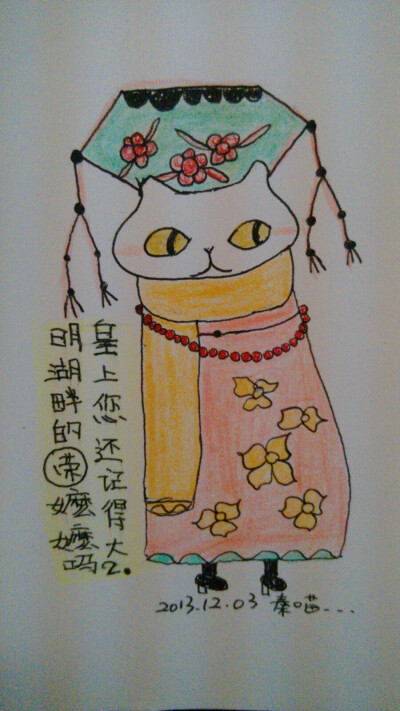 皇上您还记得大
明湖畔的荣嬷嬷吗?
2013.12.03 秦喵...